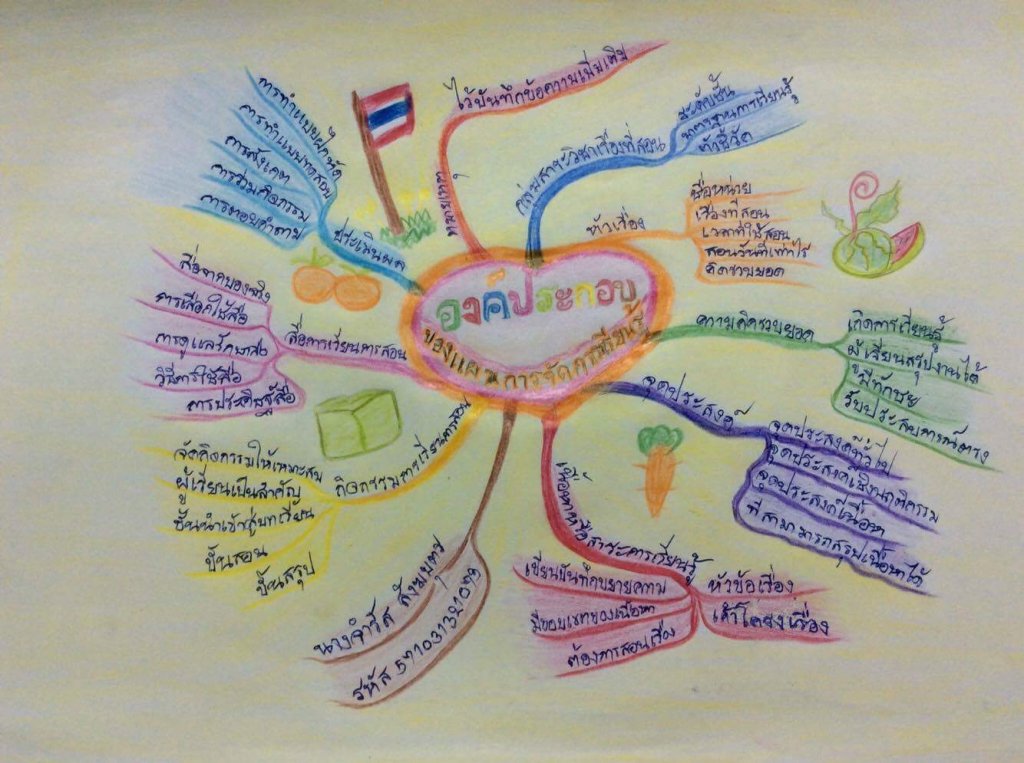 องค์ประกอบ
ของแผนการจัดการเรียนรู้
หมายเหตุ
ไว้บันทึกข้อความเพิ่มเติม
กลุ่มสาระวิชาเรื่องที่สอน
ระดับชั้น
มาตรฐานการเรียนรู้
ตัวชี้วัด
หัวเรื่อง
ชื่อหน่วย
เรื่องที่สอน
เวลาที่ใช้สอน
สอนวันที่เท่าไร
คิดรวบยอด
ความคิดรวบยอด
เกิดการเรียนรู้
ผู้เรียนสรุปงานได้
มีทักษะ
รับประสบการณ์ตรง
จุดประสงค์
จุดประสงค์ทั่วไป
จุดประสงค์เชิงพฤติกรรม
จุดประสงค์เนื้อหา
ที่สามารถสรุปเนื้อหาได้
เนื้อหาหรือสาระการเรียนรู้
หัวข้อเรื่อง
เค้าโครงเรื่อง
เขียนบันทึกขยายความ
มีขอบเขตของเนื้อหา
ต้องการสอนเรื่อง
นางจำรัส
รหัส
กิจกรรมการเรียนการสอน
จัดกิจกรรมให้เหมาะสม
ผู้เรียนเป็นสำคัญ
ขั้นนำเข้าสู่บทเรียน
ขั้นสอน
ขั้นสรุป
สื่อการเรียนการสอน
สื่อจากของจริง
การเลือกใช้สื่อ
การดูแลรักษาสื่อ
วิธีการใช้สื่อ
การประดิษฐ์สื่อ
ประเมินผล
การทำแบบฝึกหัด
การทำแบบทดสอบ
การสังเกต
การร่วมกิจกรรม
การตอบคำถาม